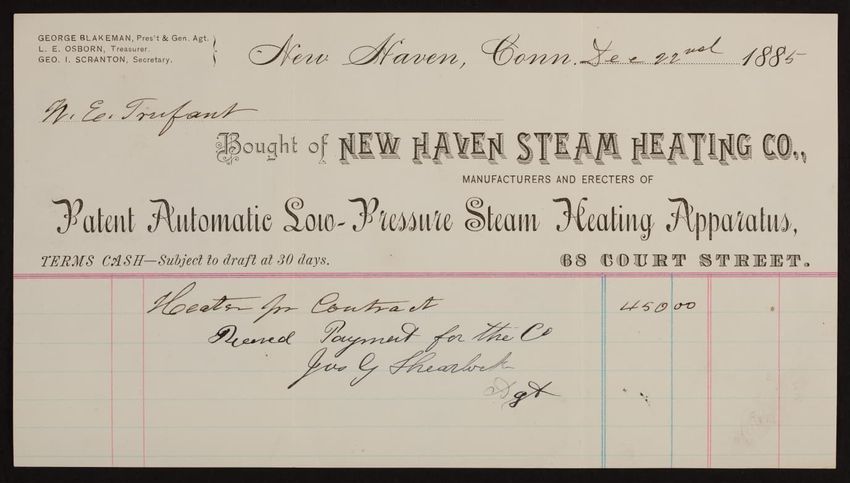 GEORGE BLAKEMAN, Pres't & Gen. Agt.
L. E. OSBORN, Treasurer.
GEO. I. SCRANTON, Secretary.
New Haven, Conn. Dec 22nd 1885
W. E. Trufant
Bought of NEW HAVEN STEAM HEATING CO.,
MANUFACTURERS AND ERECTERS OF
Patent Automatic Low-Pressure Steam Heating Apparatus,
TERMS CASH—Subject to draft at 30 days.
68 COURT STREET.
Heater pr Contract 450 00
Received Payment for the Co
Jos G Shearlock
Agt